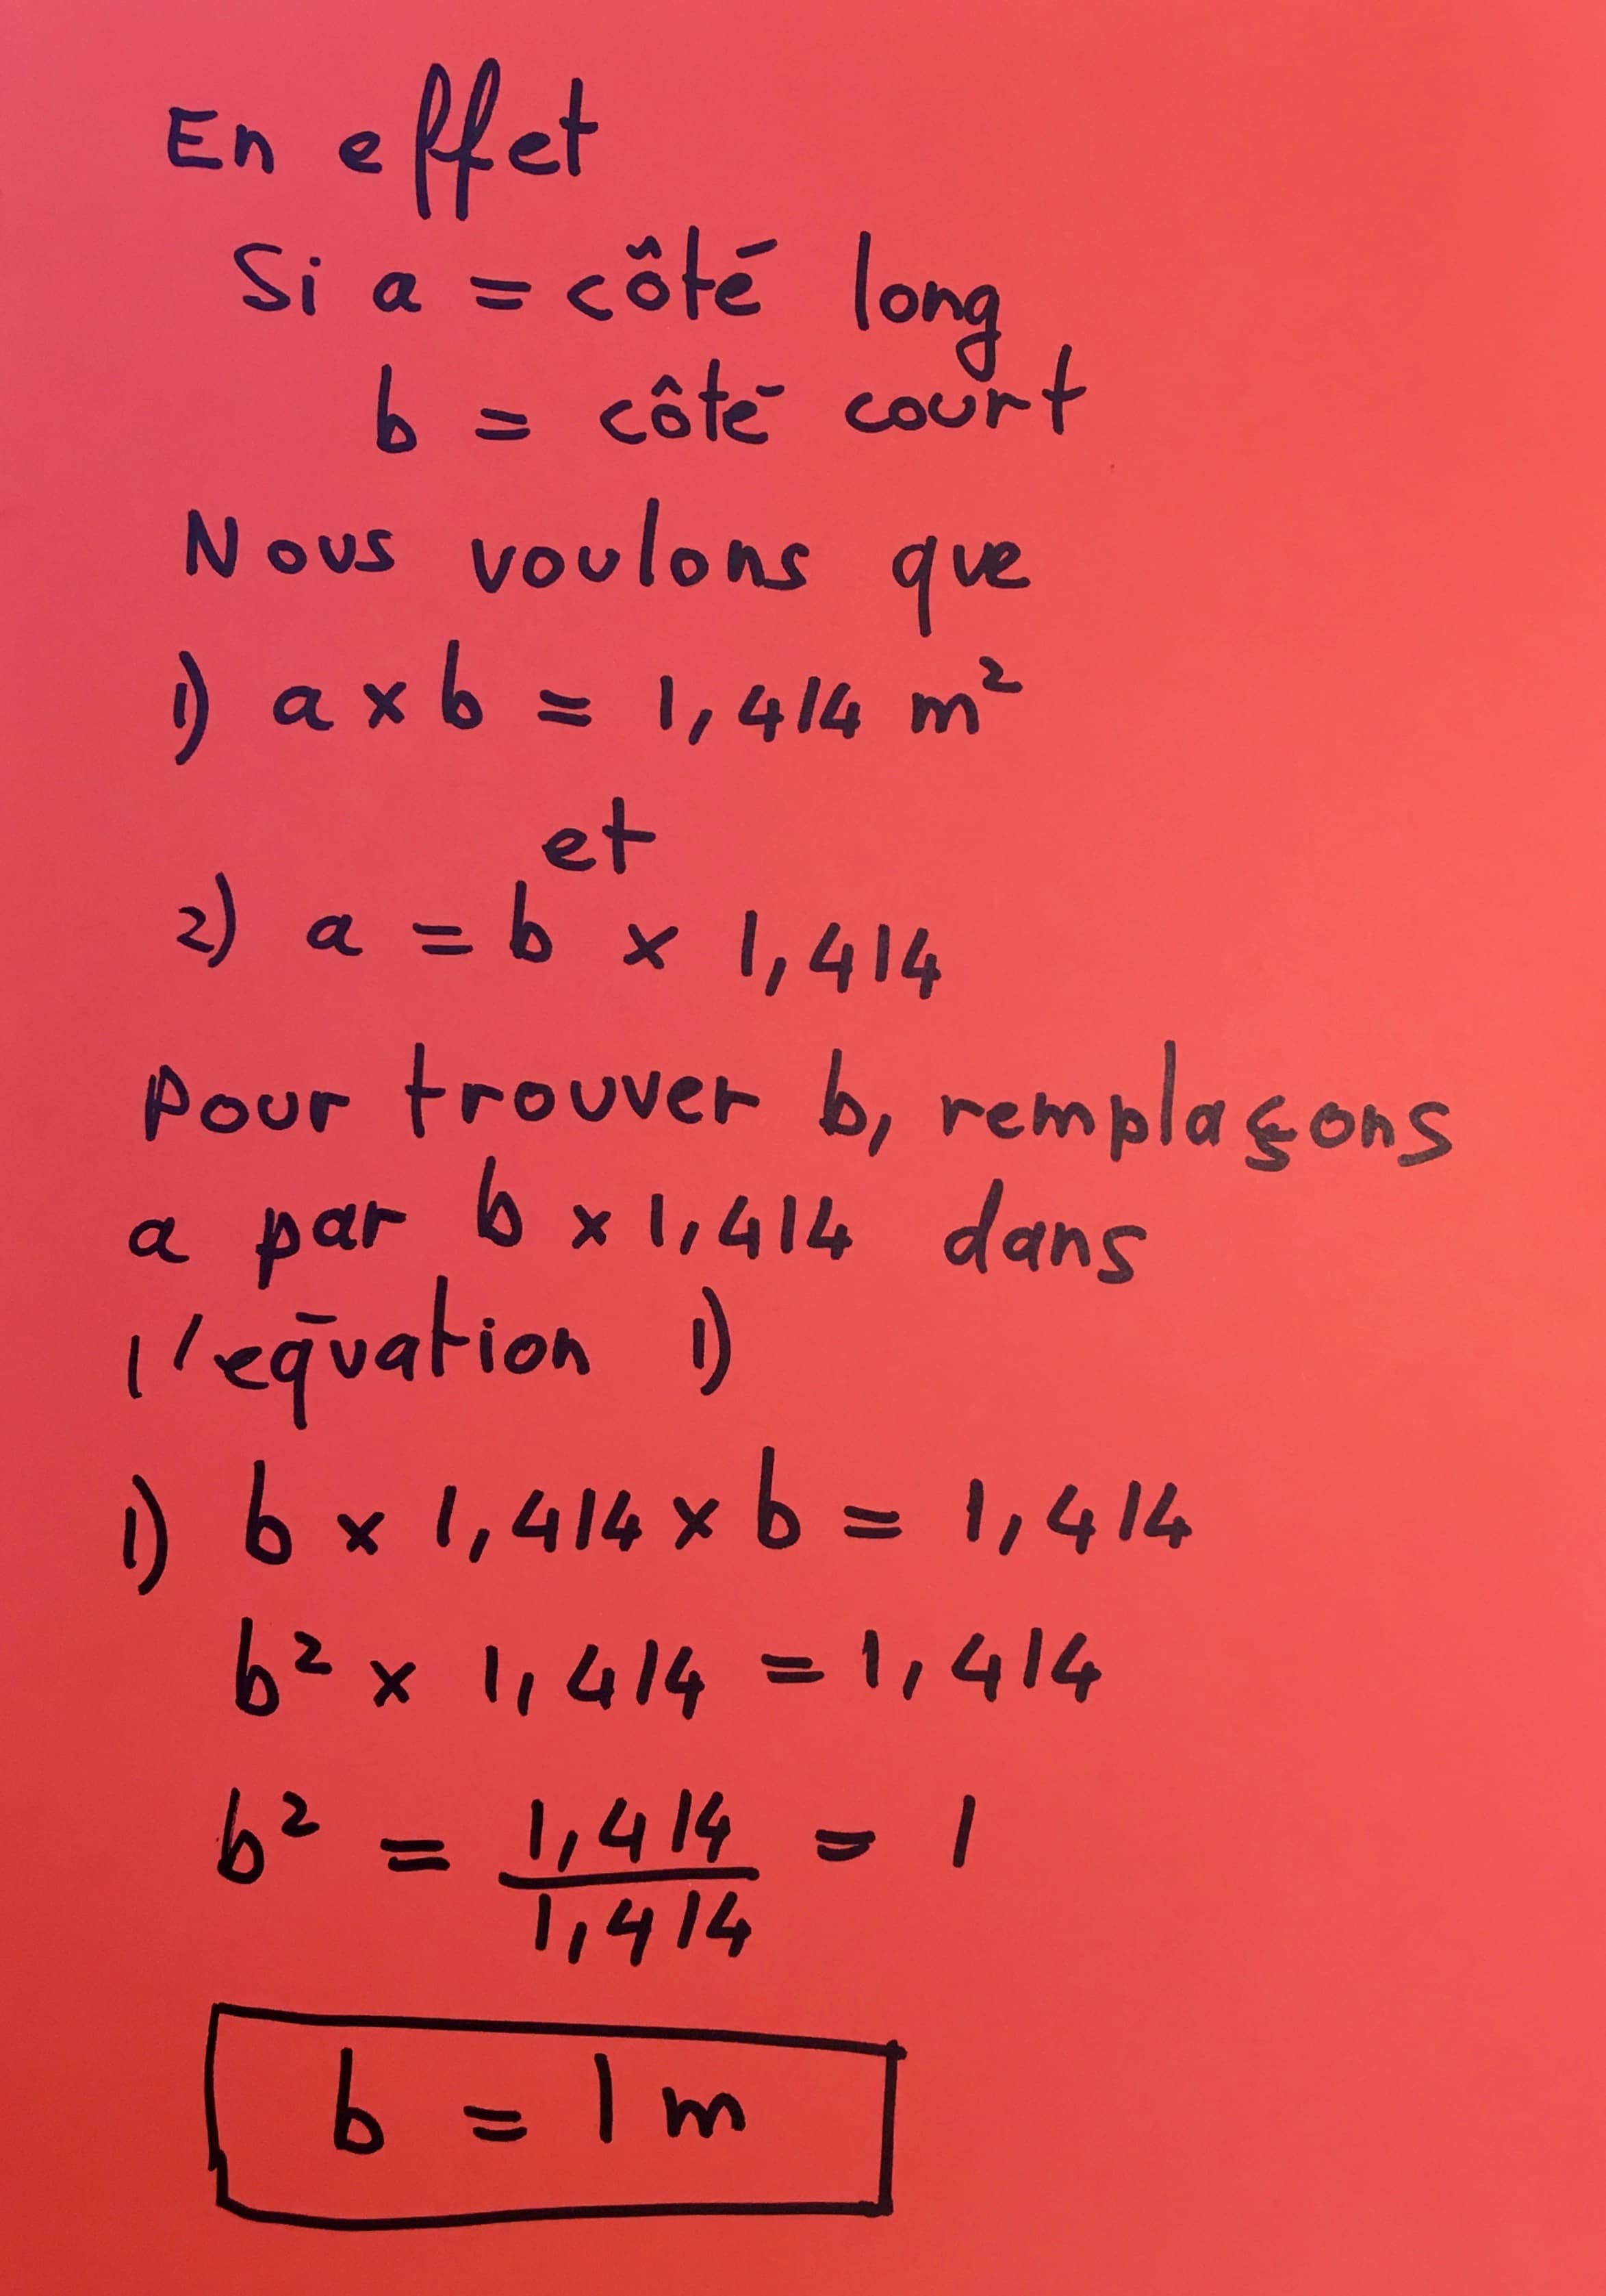 En effet
Si a = côté long
b = côté court
Nous voulons que
1) a x b = 1,414 m²
et
2) a = b x 1,414
Pour trouver b, remplaçons
a par b x 1,414 dans
l'equation 1)
1) b x 1,414 x b = 1,414
b² x 1,414 = 1,414
b² = 1,414 / 1,414 = 1
b = 1 m